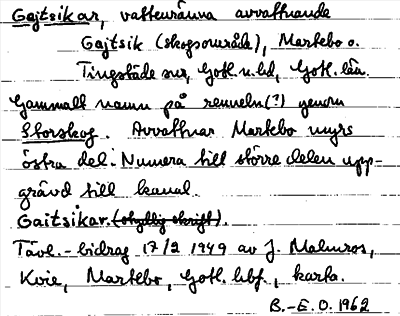 Gajtsikar, vattenränna avvattnande
Gajtsik (skogsområde), Martebo o.
Tingstäde snr, Gotl. n. hd, Gotl. län.
Gammalt namn på renneln(?) genom
Storskog. Avvattnar Martebo myrs
östra del. Numera till större delen upp-
grävd till kanal.
Gaitsikar. (otydlig skrift).
Tävl.-bidrag 17/2 1949 av J. Malmros,
Kvie, Martebo, Gotl. hbf., karta.
B.-E. O. 1962